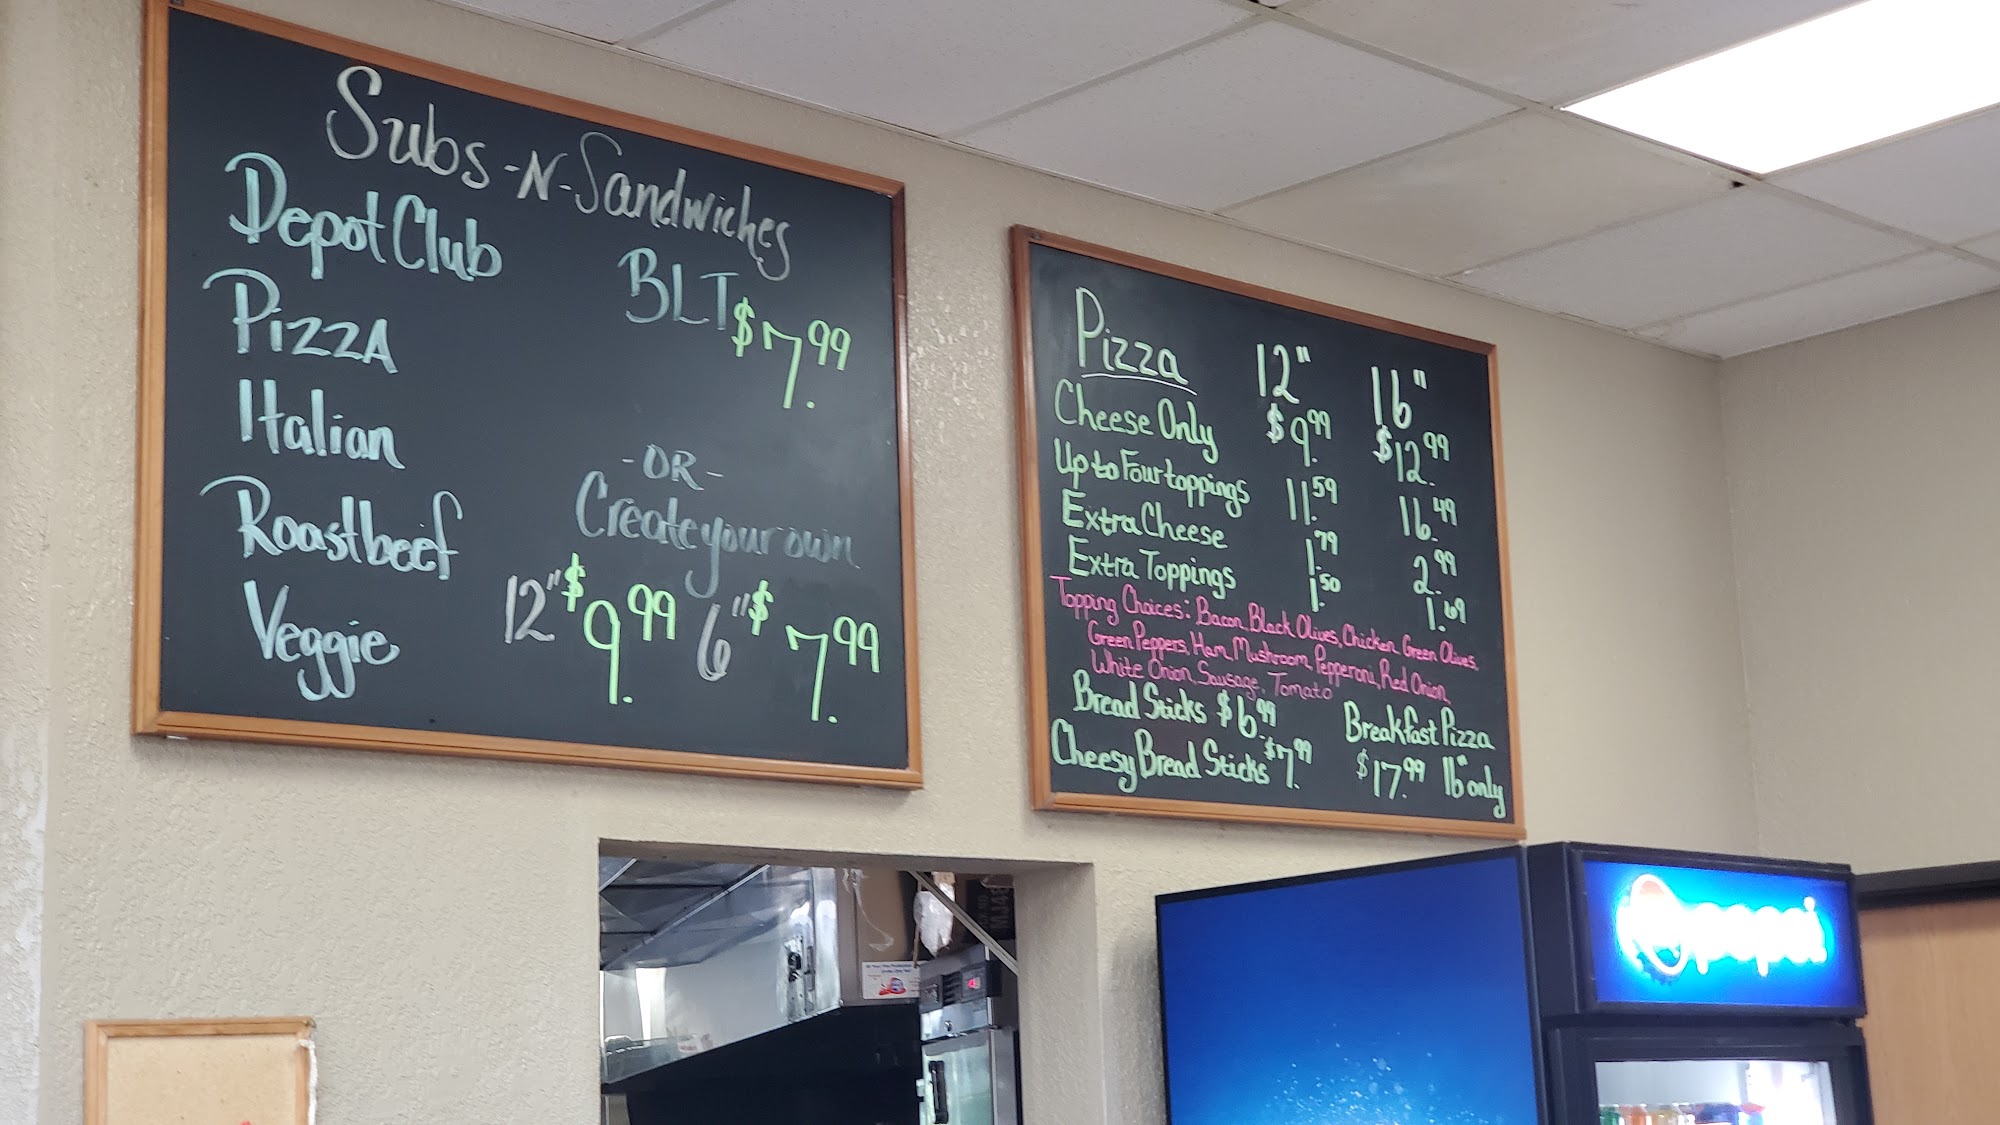 Subs-N-Sandwiches
Depot Club
Pizza
Italian
Roastbeef
Veggie
BLT $7.99
-OR-
Create your own
12" $9.99 6" $7.99
Pizza 12" 16"
Cheese Only $9.99 $12.99
Up to Four toppings 11.59 16.49
Extra Cheese 1.79 2.99
Extra Toppings 1.50 1.69
Topping Choices: Bacon, Black Olives, Chicken, Green Olives,
Green Peppers, Ham, Mushroom, Pepperoni, Red Onion,
White Onion, Sausage, Tomato
Bread Sticks $6.99
Cheesy Bread Sticks $7.99
Breakfast Pizza
$17.99 16" only
pepsi